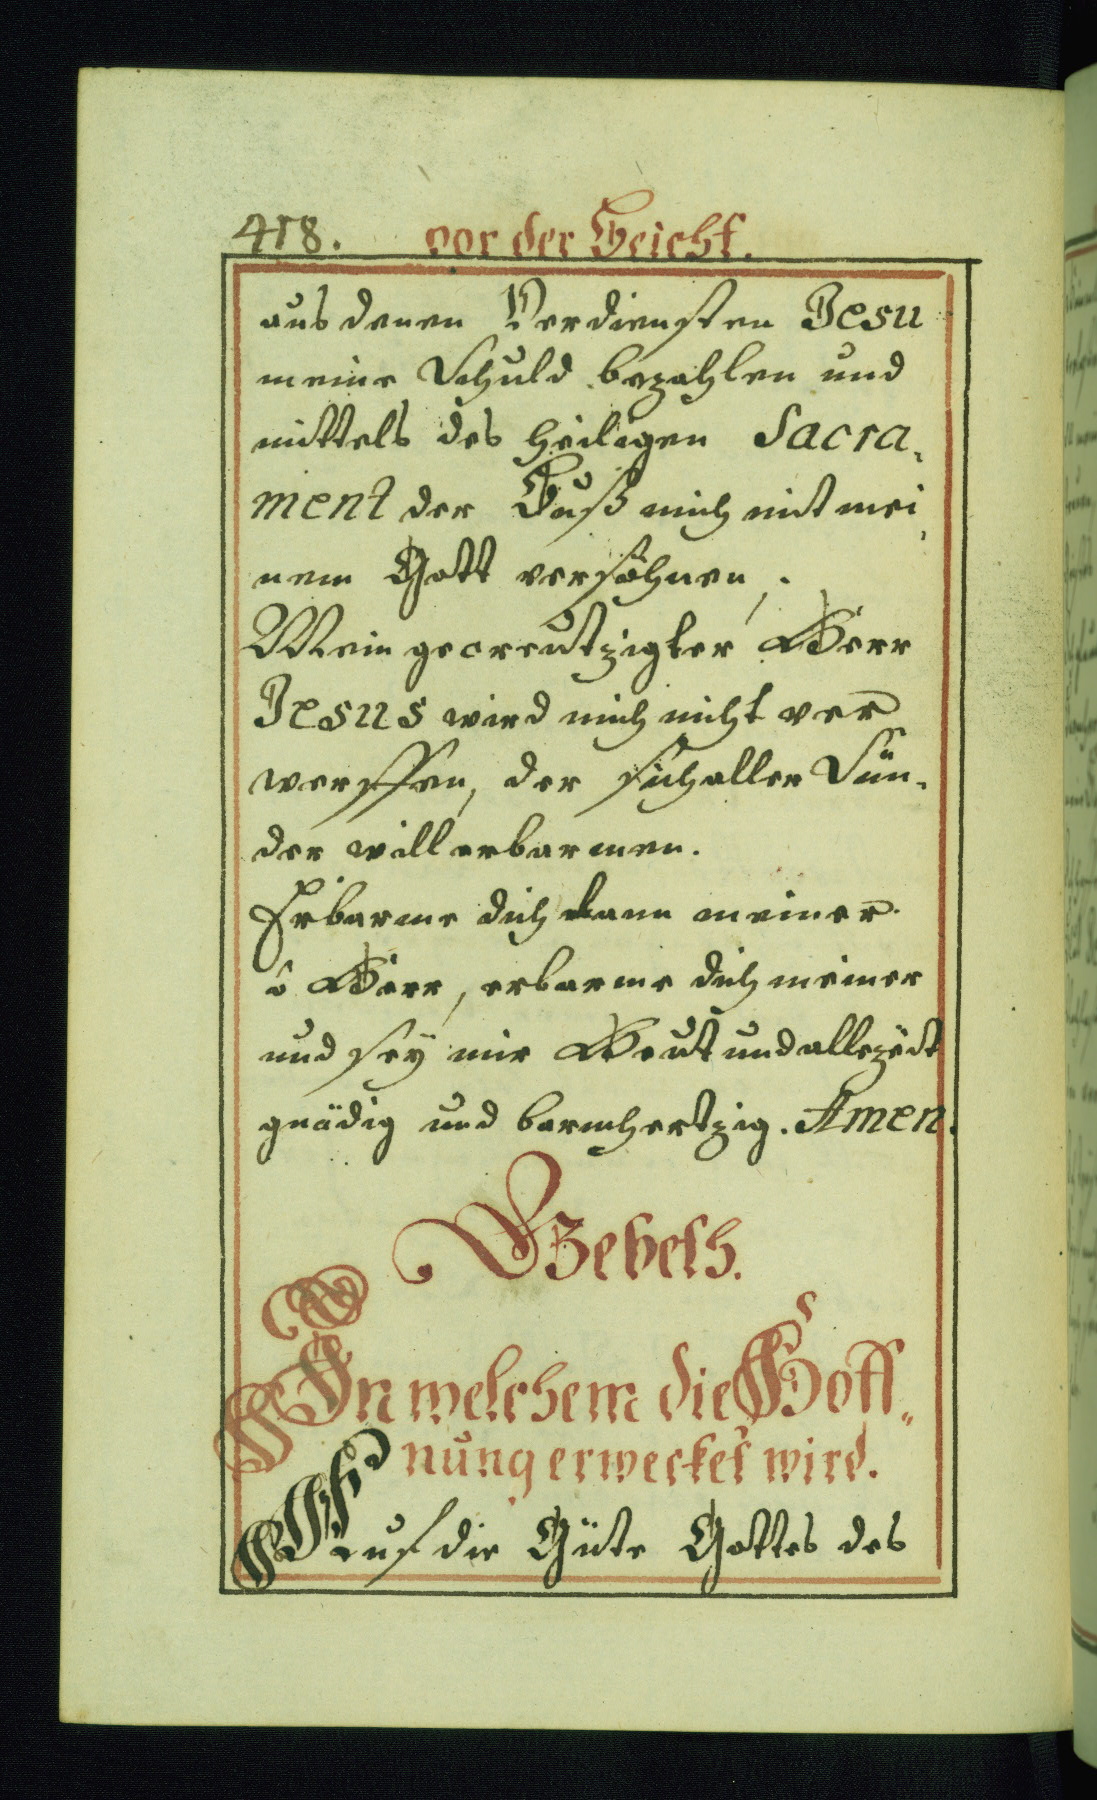 418. vor der Beicht.
aus denen Verdiensten Jesu
meine Schuld bezahlen und
mittels des heiligen Sacra,
ment der Buß mich mit mei,
nem Gott versöhnen.
Mein gecreutzigter Herr
Jesus wird mich nicht ver
werffen, der sich aller Sün,
der will erbarmen.
Erbarme dich dann meiner
ô Herr, erbarme dich meiner
und seÿ mir Heut und allezeit
gnädig und barmhertzig. Amen.
Gebeth.
In welchem die Hoff„
nung erwecket wird.
Auf die Güte Gottes des